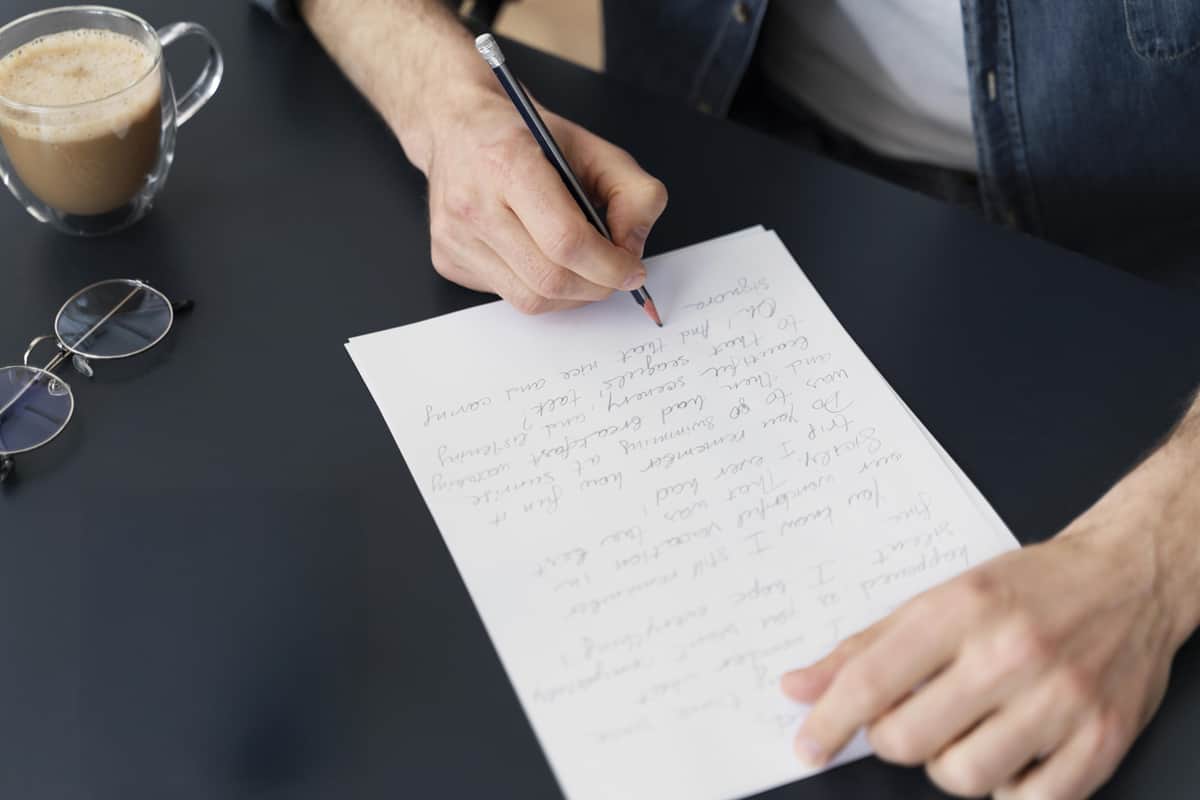 I wonder what
happened as you went completely
silent I hope everything's
fine
You know I still remember
our wonderful vacation in
Sicily. That was the best
trip I ever had!
Do you remember how fun it
was to go swimming at sunrise
and then had breakfast watching
beautiful scenery, and listening
to that seaguels talk?
Oh, And that nice and caring
signora